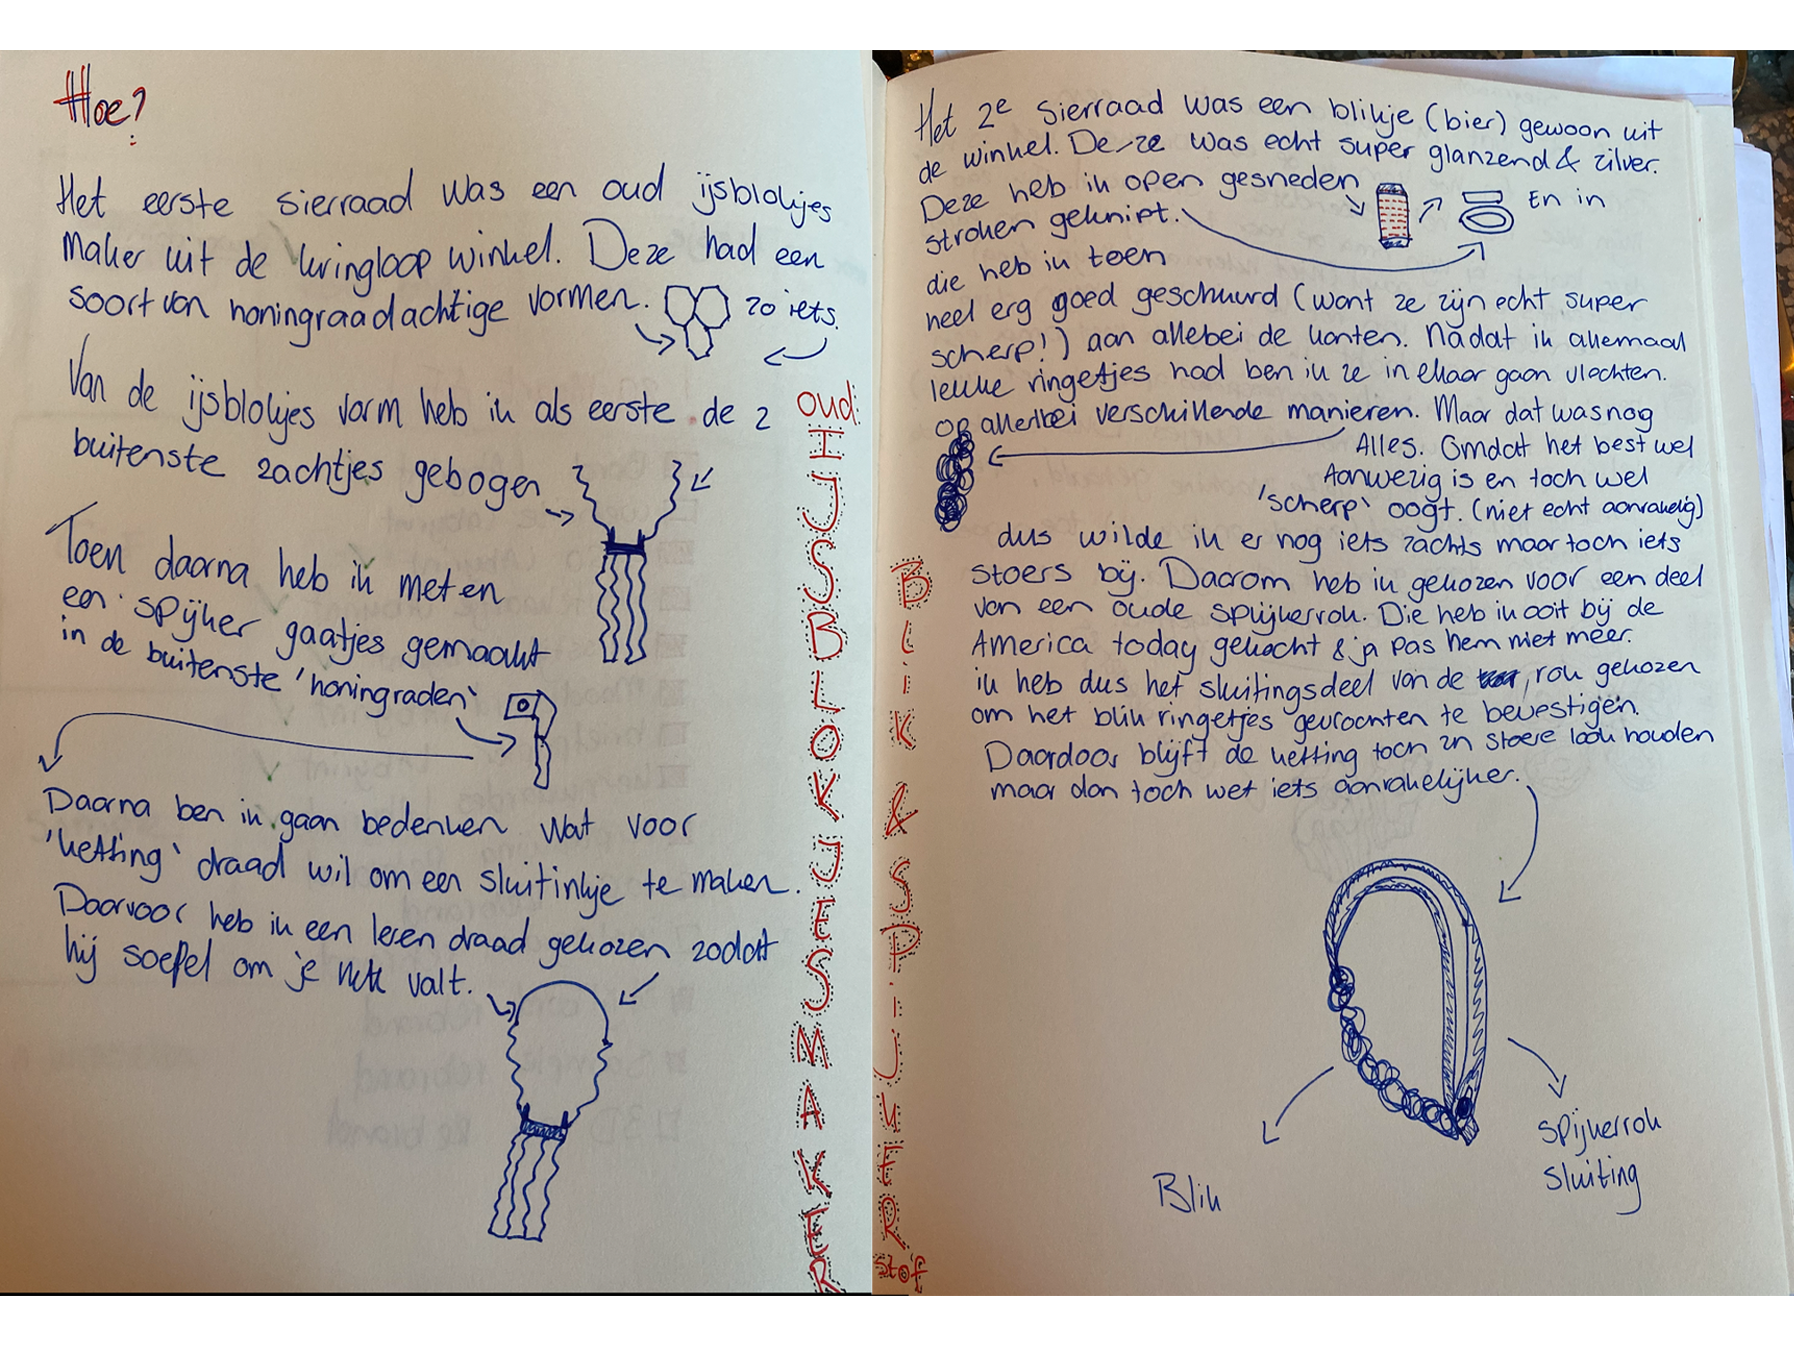 Hoe?
Het eerste sierraad was een oud ijsblokjes
maker uit de kringloop winkel. Deze had een
soort van honingraadachtige vormen. zo iets.
Van de ijsblokjes vorm heb ik als eerste de 2
buitenste zachtjes gebogen
Toen daarna heb ik met en
een spijker gaatjes gemaakt
in de buitenste 'honingraden'
Daarna ben ik gaan bedenken wat voor
'ketting' draad wil om een sluitinkje te maken.
Daarvoor heb ik een leren draad gekozen zodat
hij soepel om je nek valt.
oud
IJSBLOKJESMAKER
Het 2e sierraad was een blikje (bier) gewoon uit
de winkel. Deze was echt super glanzend & zilver.
Deze heb ik open gesneden En in
stroken geknipt.
die heb ik toen
heel erg goed geschuurd (want ze zijn echt super
scherp!) aan allebei de kanten. Nadat ik allemaal
leuke ringetjes had ben ik ze in elkaar gaan vlechten.
op allerbei verschillende manieren. Maar dat was nog
Alles. Omdat het best wel
Aanwezig is en toch wel
'scherp' oogt. (niet echt aanrakelijk)
dus wilde ik er nog iets zachts maar toch iets
stoers bij. Daarom heb ik gekozen voor een deel
van een oude spijkerrok. Die heb ik ooit bij de
America today gekocht & ja pas hem niet meer.
ik heb dus het sluitingsdeel van de rok gekozen
om het blik ringetjes gevrochten te bevestigen.
Daardoor blijft de ketting toch zn stoere look houden
maar dan toch wet iets aanrakelijker.
BLiK & SPiJKER
stof
Blik
Spijkerrok
sluiting